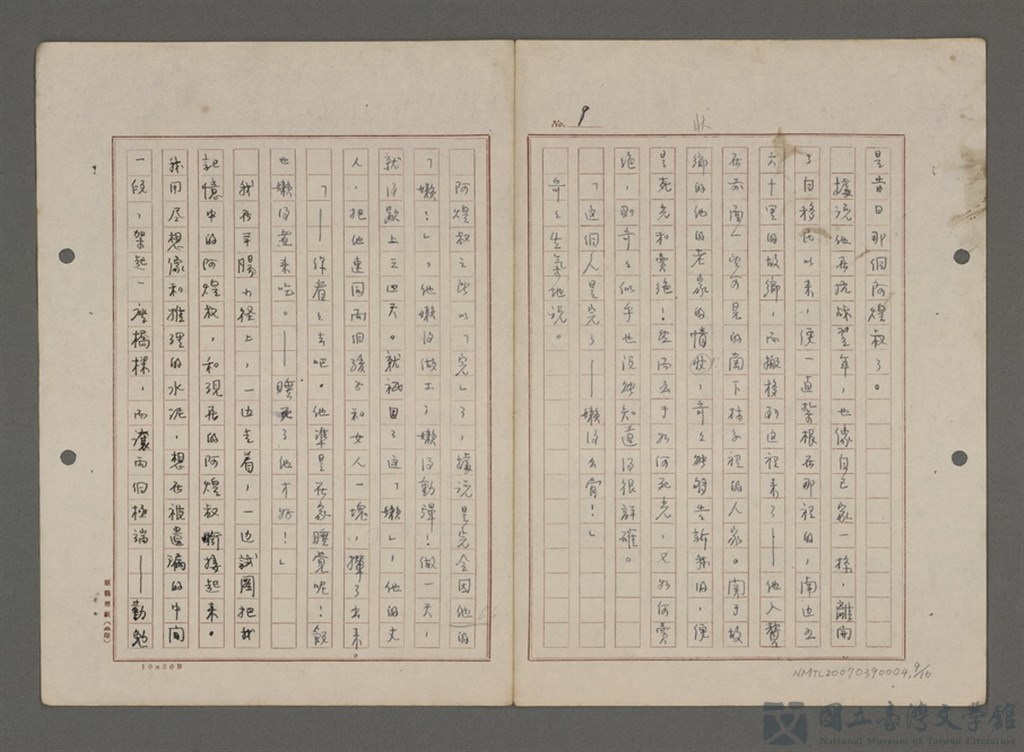 No. 9
是昔日那個阿煌叔了。
據說他在抗婚翌年，也像自己家一樣，離開
了自移民以來，便一直紮根在那裡的，南边五
六十里的故鄉，而搬移到这裡來了——他入贅
在前面人字可見的閹下村子裡的人家。関于故
鄉的他的老家的情形，哥哥能够告訴我的，便
是死光和賣絕！然而至于如何死光，又如何賣
絕，則哥哥似乎也沒能知道得很詳確。
「这個人是完了——懶得出骨！」
哥哥生氣地說。
阿煌叔之所以「完」了，據說是完全因他的
「懶！」。他懶得做工，懶得動彈！做一天，
就得歇上三四天。就祇因了这「懶」，他的丈
人，把他連同兩個孩子和女人一塊，攆了出來。
「——你看看去吧。他準是在家睡覺呢！飯
也懶得煮來吃。——睡死了他才好！」
我在羊腸小徑上，一边走着，一边試圖把我
記憶中的阿煌叔，和現在的阿煌叔啣接起來。
我用尽想像和推理的水泥，想在被遺漏的中間
一段，架起一座橋樑，而讓兩個極端——勤勉
10×20B
NMTL20070390004, 9/16
國立臺灣文學館
National Museum of Taiwan Literature